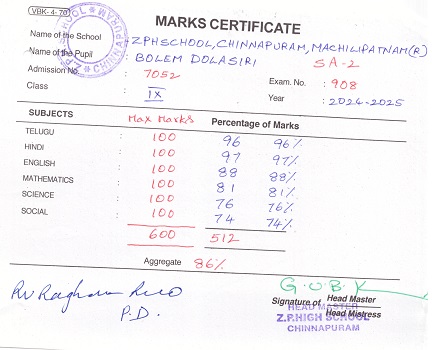 VBK-4-70
Z.P. HIGH SCHOOL CHINNAPURAM
MARKS CERTIFICATE
Name of the School : Z.P.H SCHOOL, CHINNAPURAM, MACHILIPATNAM(R)
Name of the Pupil : BOLEM DOLASIRI SA-2
Admission No. : 7052 Exam. No. : 908
Class : IX Year : 2024-2025
SUBJECTS Max Marks Percentage of Marks
TELUGU : 100 96 96%
HINDI : 100 97 97%
ENGLISH : 100 88 88%
MATHEMATICS : 100 81 81%
SCIENCE : 100 76 76%
SOCIAL : 100 74 74%
600 512
Aggregate 86%
RV Raghava Rao
P.D.
G.U.B.K
Signature of Head Master
Head Mistress
HEAD MASTER
Z.P.HIGH SCHOOL
CHINNAPURAM